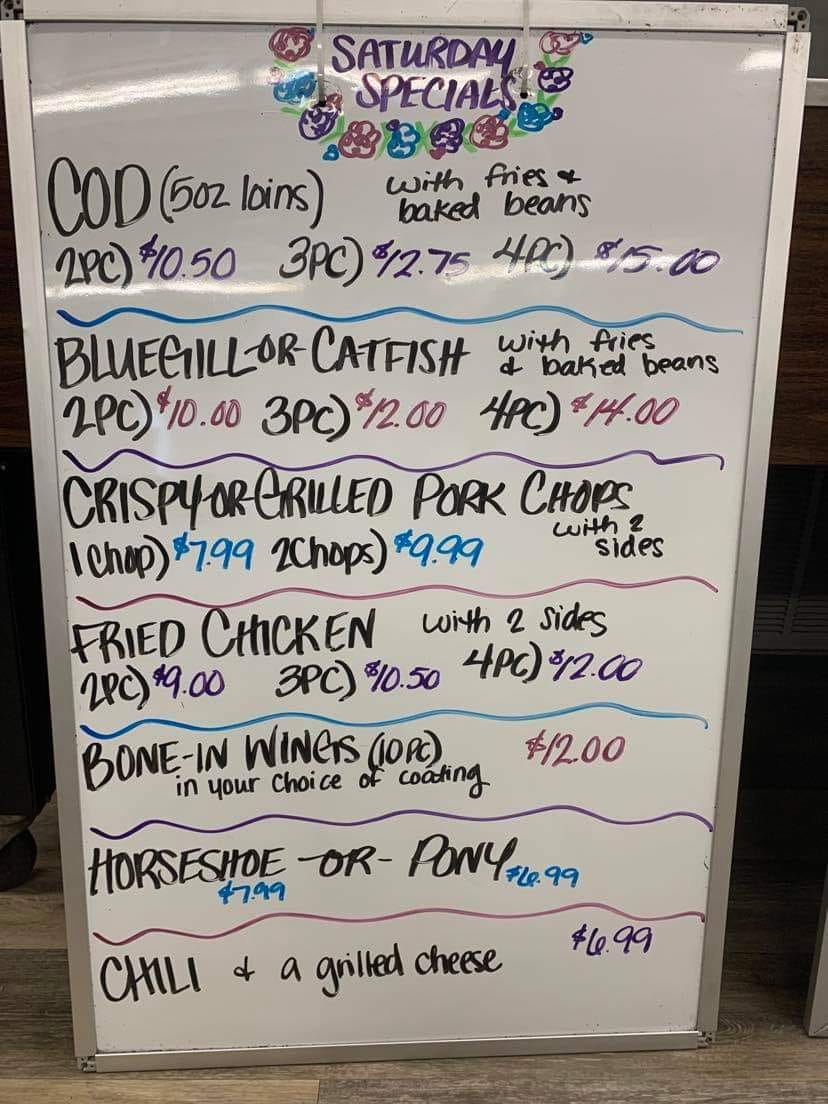 SATURDAY
SPECIALS
COD (5oz loins) with fries &
baked beans
2PC) $10.50 3PC) $12.75 4PC) $15.00
BLUEGILL -OR- CATFISH with fries
& baked beans
2PC) $10.00 3PC) $12.00 4PC) $14.00
CRISPY-OR-GRILLED PORK CHOPS
with 2
sides
1 Chop) $7.99 2Chops) $9.99
FRIED CHICKEN with 2 sides
2PC) $9.00 3PC) $10.50 4PC) $12.00
BONE-IN WINGS (10 PC) $12.00
in your choice of coating
HORSESHOE -OR- PONY $6.99
$7.99
CHILI & a grilled cheese $6.99